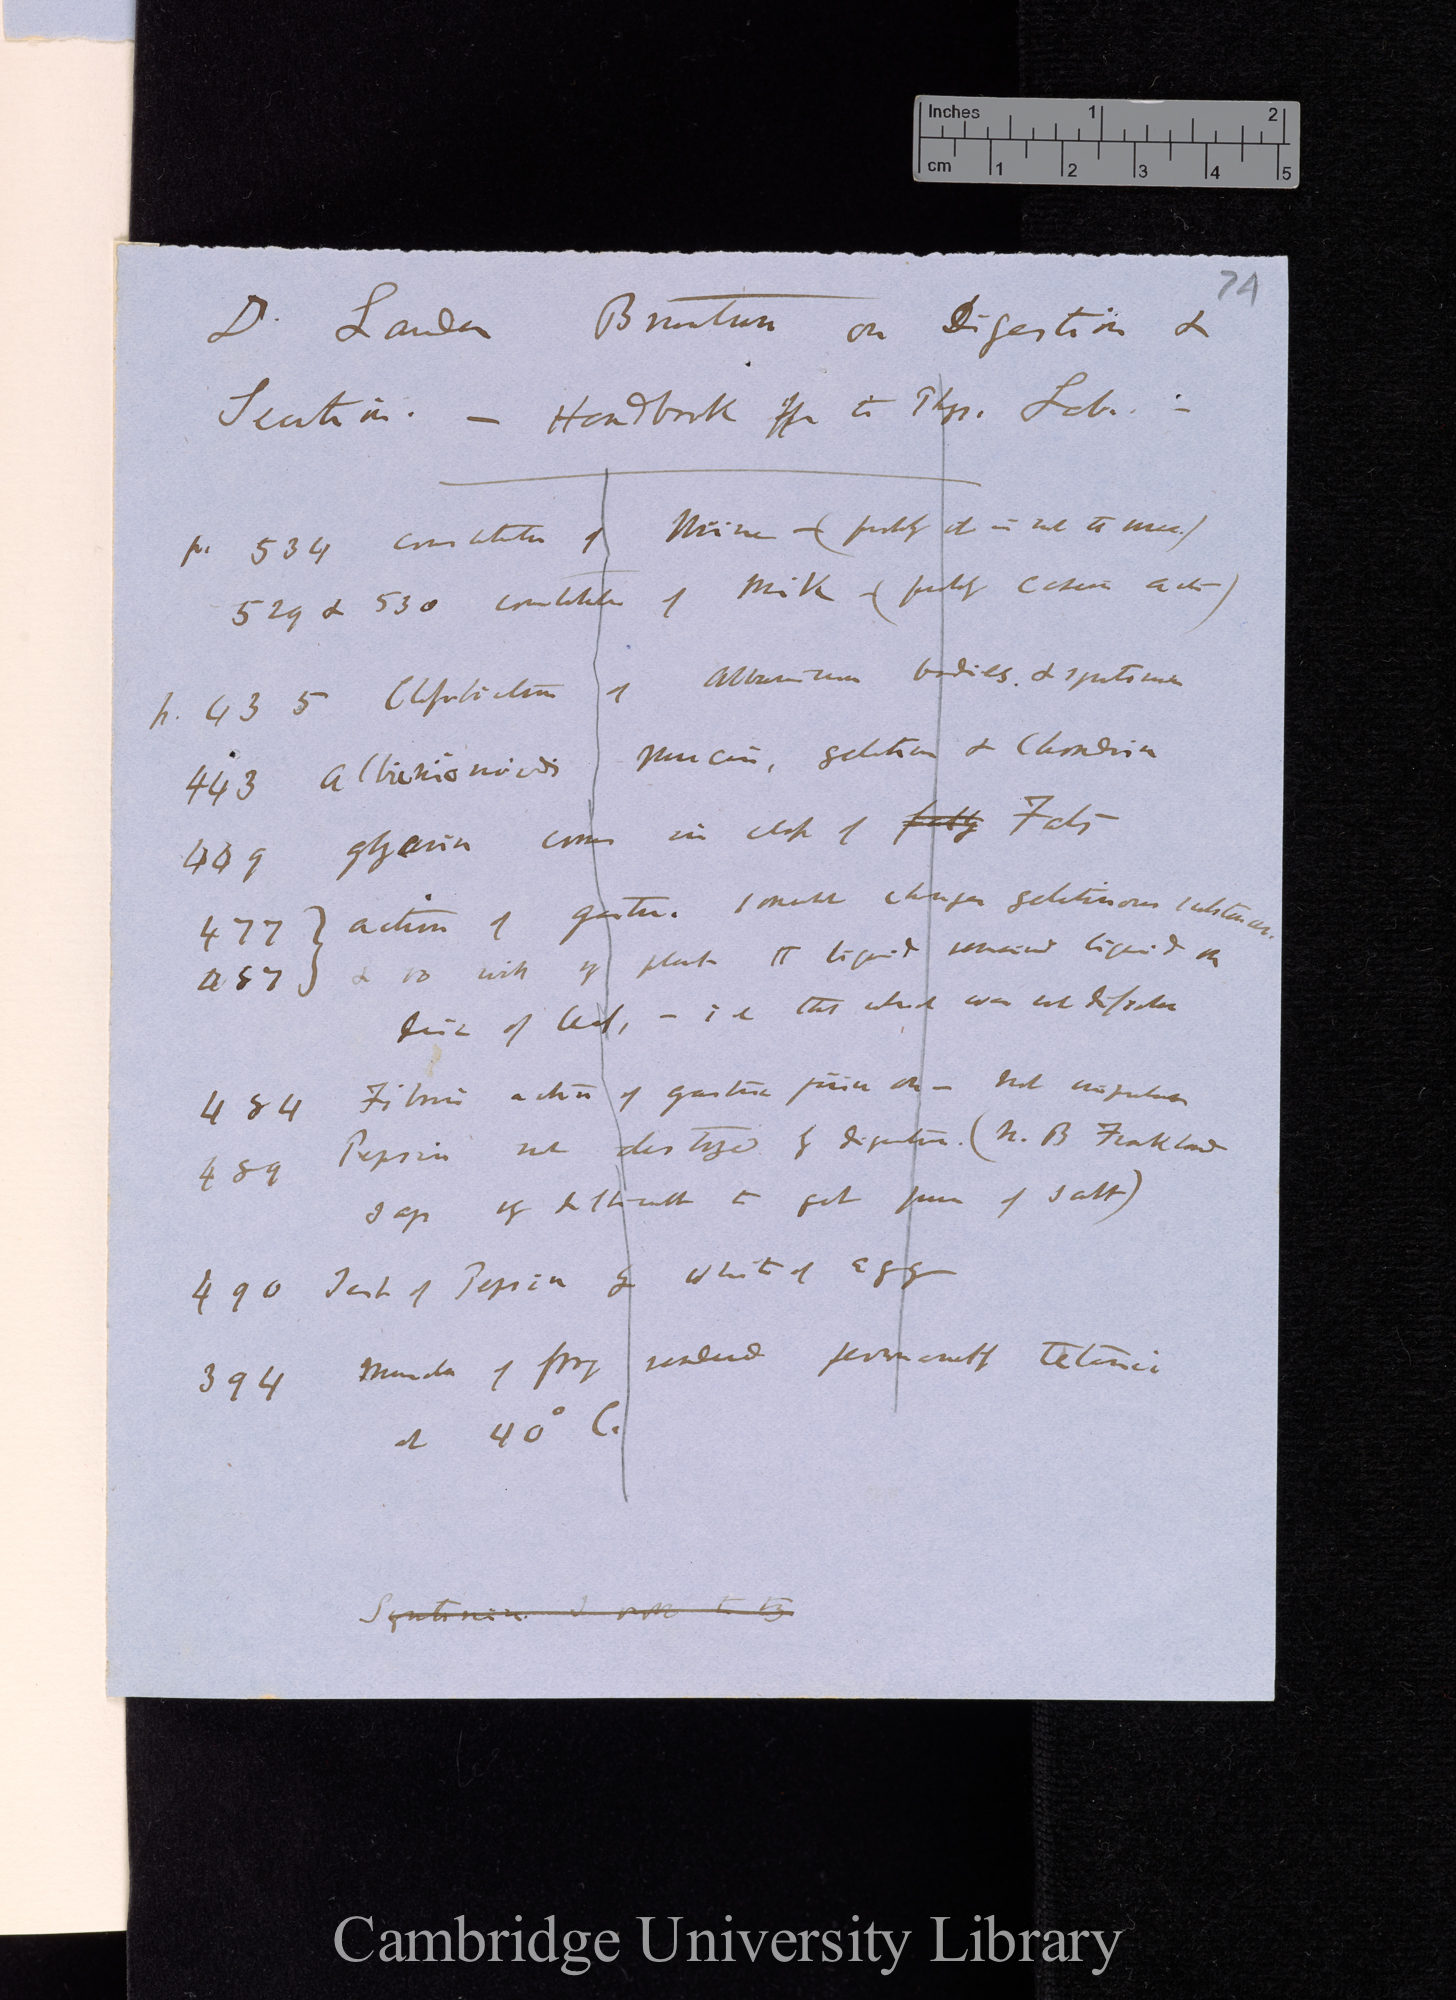 Inches 1 2
cm 1 2 3 4 5
74
Dr. Lauder Brunton on Digestion &
Secretion. — Handbook for the Phys. Lab. —
p. 534 constitution of Urine — (
529 & 530 constitution of Milk — ( Casein acts)
p. 435 Classification of Albuminous bodies. & syntonin
443 Albuminoids mucin, gelatin & Chondrin
449 glycerin comes in class of fatty Fats
477 } action of gastric. changes gelatinous substances.
487 } & so with if liquid remained liquid on
of Leaf, — i.e that which was not dissolved
484 Fibrin action of gastric juice on — not
489 Pepsin not destroyed by digestion. (N. B Frankland
says v difficult to get pure of salt)
490 Test of Pepsin by white of egg
394 Muscles of frog rendered permanently tetanic
at 40° C.
Syntonin I to try
Cambridge University Library